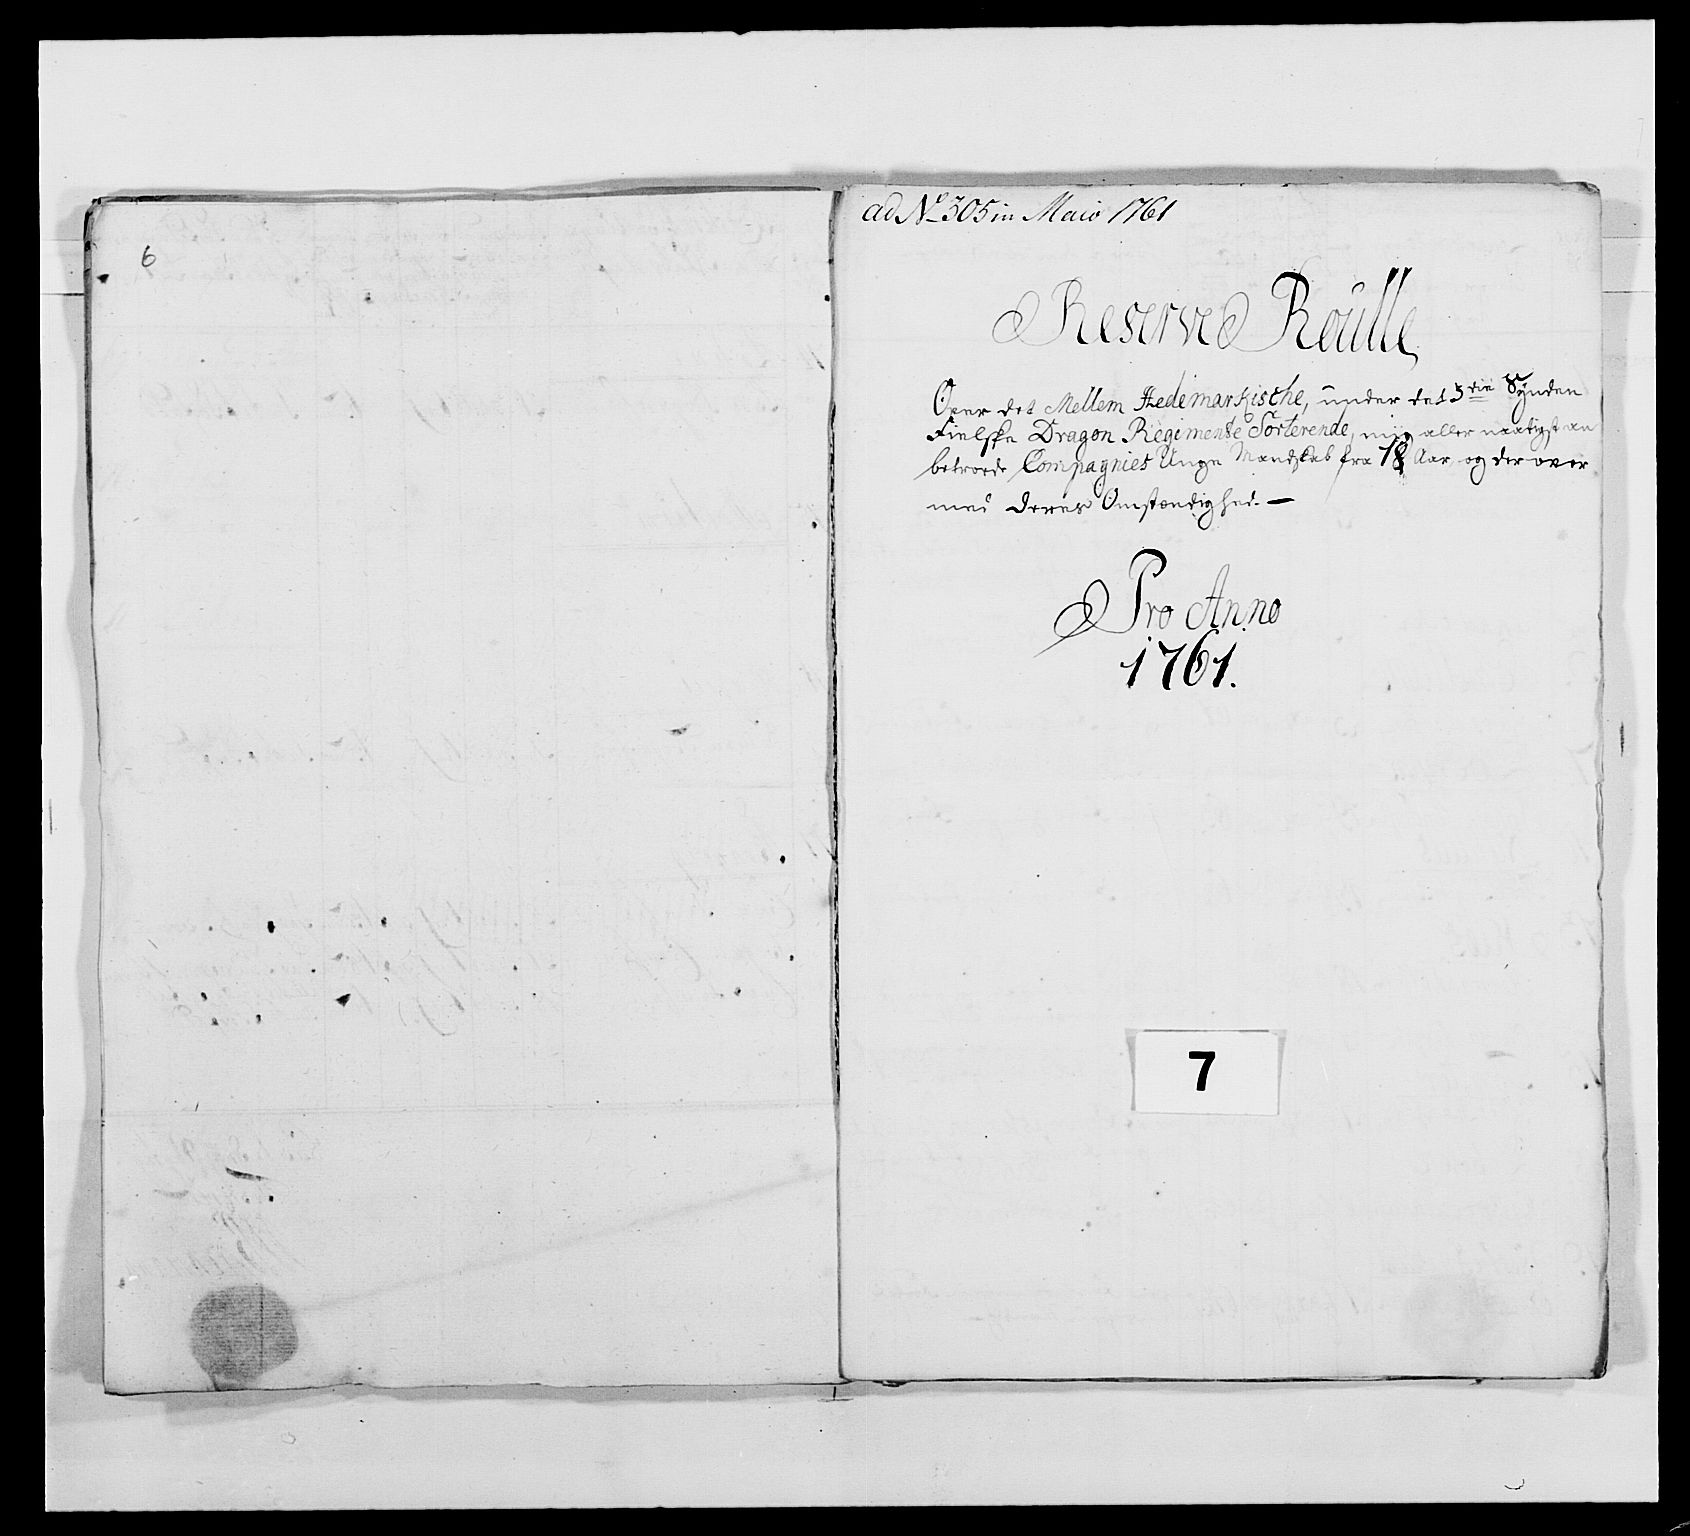 6
ad No 305 in Maio 1761
Reserve Roulle
Over det Mellem Hedemarkische, under det 3die Synden
Fielske Dragon Regimente Sorterende, mig aller naadigst an
betroede Compagnies Unge Mandskab fra 18 Aar og der over
med deres Omstændighed. —
Pro Anno
1761.
7